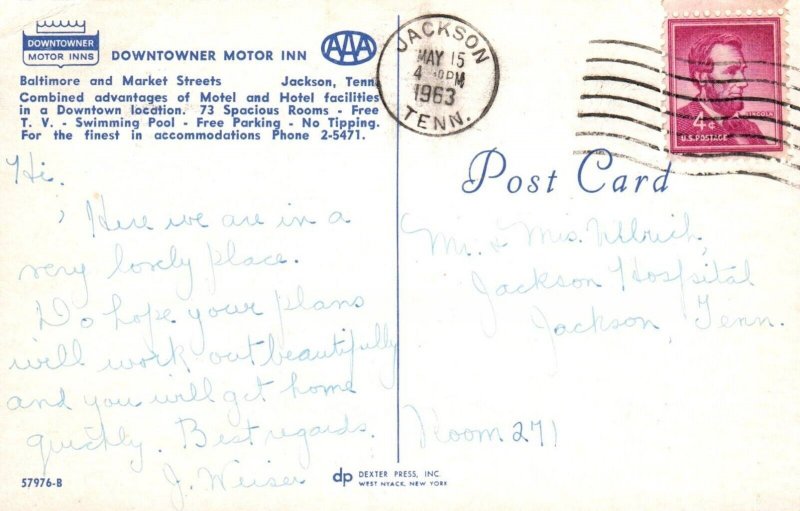 DOWNTOWNER
MOTOR INNS
DOWNTOWNER MOTOR INN
AAA
Baltimore and Market Streets Jackson, Tenn
Combined advantages of Motel and Hotel facilities
in a Downtown location. 73 Spacious Rooms - Free
T. V. - Swimming Pool - Free Parking - No Tipping.
For the finest in accommodations Phone 2-5471.
JACKSON
MAY 15
4 PM
1963
TENN.
4¢
LINCOLN
U.S. POSTAGE
Post Card
Hi,
Here we are in a
very lovely place.
Do hope your plans
will work out beautifully
and you will get home
quickly. Best regards.
J. Weiser
Mr. & Mrs. Ullrich,
Jackson Hospital
Jackson, Tenn.
Room 271
57976-B
dp DEXTER PRESS, INC.
WEST NYACK, NEW YORK